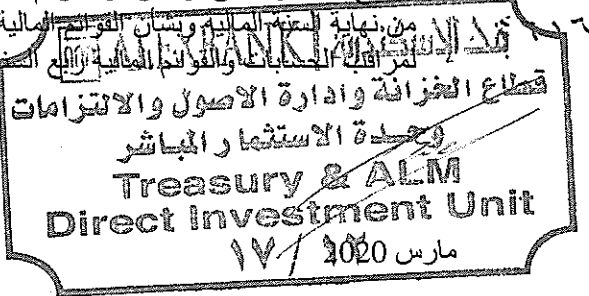 من نهاية السنه الماليه وبشأن القوائم المالية
لمراقب الحسابات والقوائم المالية
ALEXBANK بنك الإسكندرية
قطاع الخزانة وادارة الاصول والالتزامات
وحدة الاستثمار المباشر
Treasury & ALM
Direct Investment Unit
١٧ / ١٢
مارس 2020